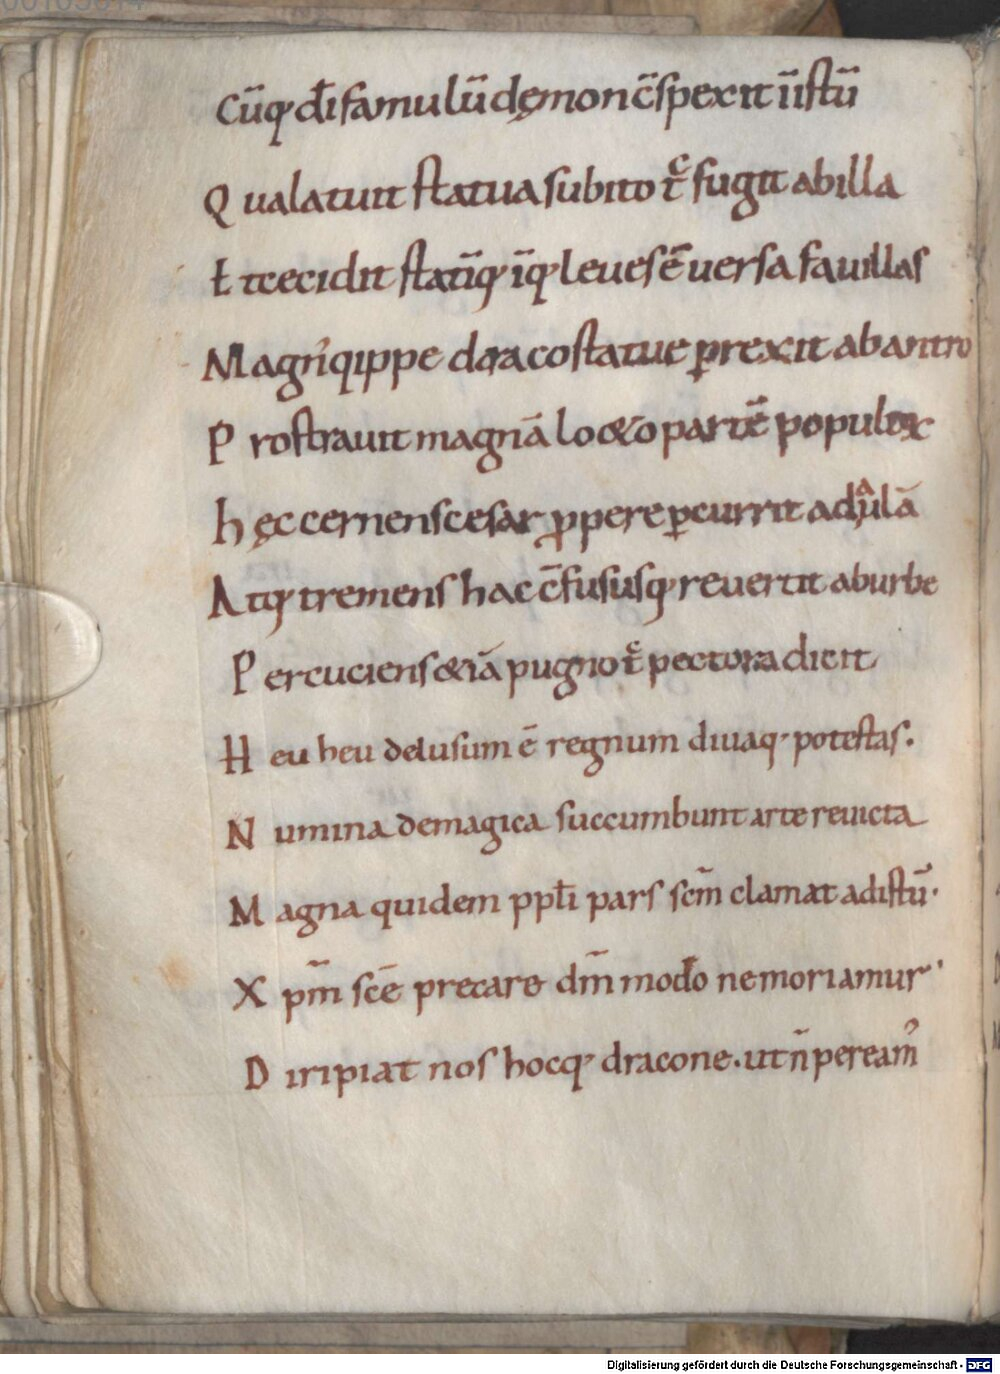 Cūq; dī famulū dęmon c̄spexit iīstū
Qua latuit statua subito tc̄ fugit ab illa
Et cecidit statīq; īq; leues ē uersa fauillas
Magn' qippe draco statue p̱rexit ab antro
Prostrauit magnā loetho partē populorx
Hęc cernens cesar ppere p̱currit ad aulā
Atq; tremens hac c̄fususq; reuertit ab urbe
Percuciens & iā pugno tc̄ pectora dicit
Heu heu delusum ē regnum diuaq; potestas.
Numina de magica succumbunt arte reuicta
Magna quidem ppłi pars scm̄ clamat ad istū.
Xpm̄ scē precare dm̄ modo ne moriamur
Diripiat nos hocq; dracone. ut n̄ peream'
Digitalisierung gefördert durch die Deutsche Forschungsgemeinschaft - DFG